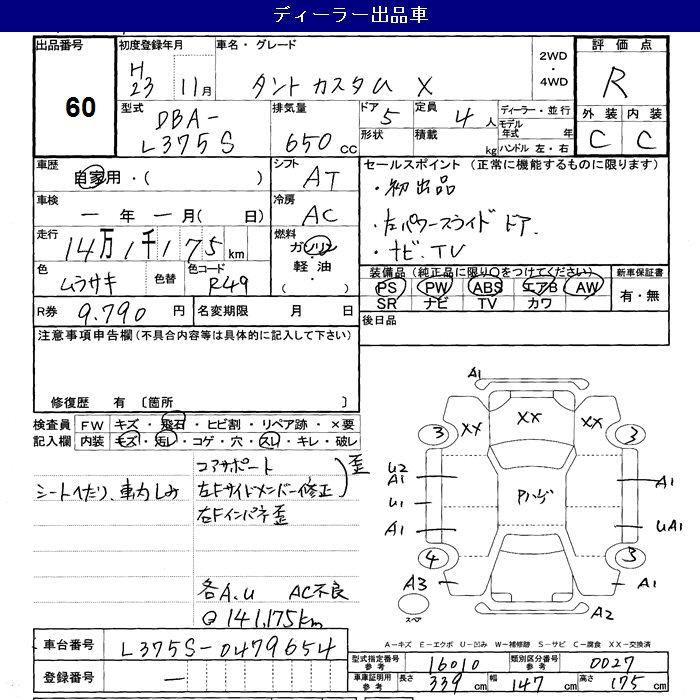 ディーラー出品車
出品番号 初度登録年月 車名・グレード 2WD・4WD 評価点
60 H23 11月 タント カスタム X R
型式 排気量 ドア 定員 ディーラー・並行 外装 内装
DBA-L375S 650cc 5 4人 モデル年式 年 C C
形状 積載 kg ハンドル 左・右
車歴 シフト セールスポイント (正常に機能するものに限ります)
自家用・( ) AT ・初出品
車検 冷房 ・左パワースライドドア.
一年一月( 日) AC ・ナビ.TV
走行 燃料
14万1千175km ガソリン・軽油・( )
装備品 (純正品に限り○をつけてください) 新車保証書
色 色替 色コード PS PW ABS エアB AW 有・無
ムラサキ R49 SR ナビ TV カワ
R券 9.790円 名変期限 月 日 後日品
注意事項申告欄 (不具合内容等は具体的に記入して下さい)
修復歴 有 〔箇所 〕
検査員 FW キズ・飛石・ヒビ割・リペア跡・×要
記入欄 内装 キズ・汚レ・コゲ・穴・スレ・キレ・破レ
コアサポート 歪
シートへたり、車内しみ 左Fサイドメンバー修正
右Fインパネ歪
各A.U AC不良
Q 141,175km
A1
XX XX XX
3 3
U2
A1 A1
U1 Pハゲ
A1 UA1
4 3
A3 A1
スペア A2
A-キズ E-エクボ U-凹み W-補修跡 S-サビ C-腐食 XX-交換済
車台番号 L375S-0479654
型式指定番号 参考 16010 類別区分番号 参考 0027
登録番号 一
車庫証明用 参考 長さ 339cm 幅 147cm 高さ 175cm